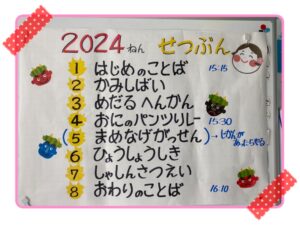 2024ねん せつぶん
1 はじめのことば 15:15
2 かみしばい
3 めだる へんかん
4 おにのパンツリレー 15:30
(5 まめなげがっせん) → じかんが あったらやる
6 ひょうしょうしき
7 しゃしんさつえい
8 おわりのことば 16:10